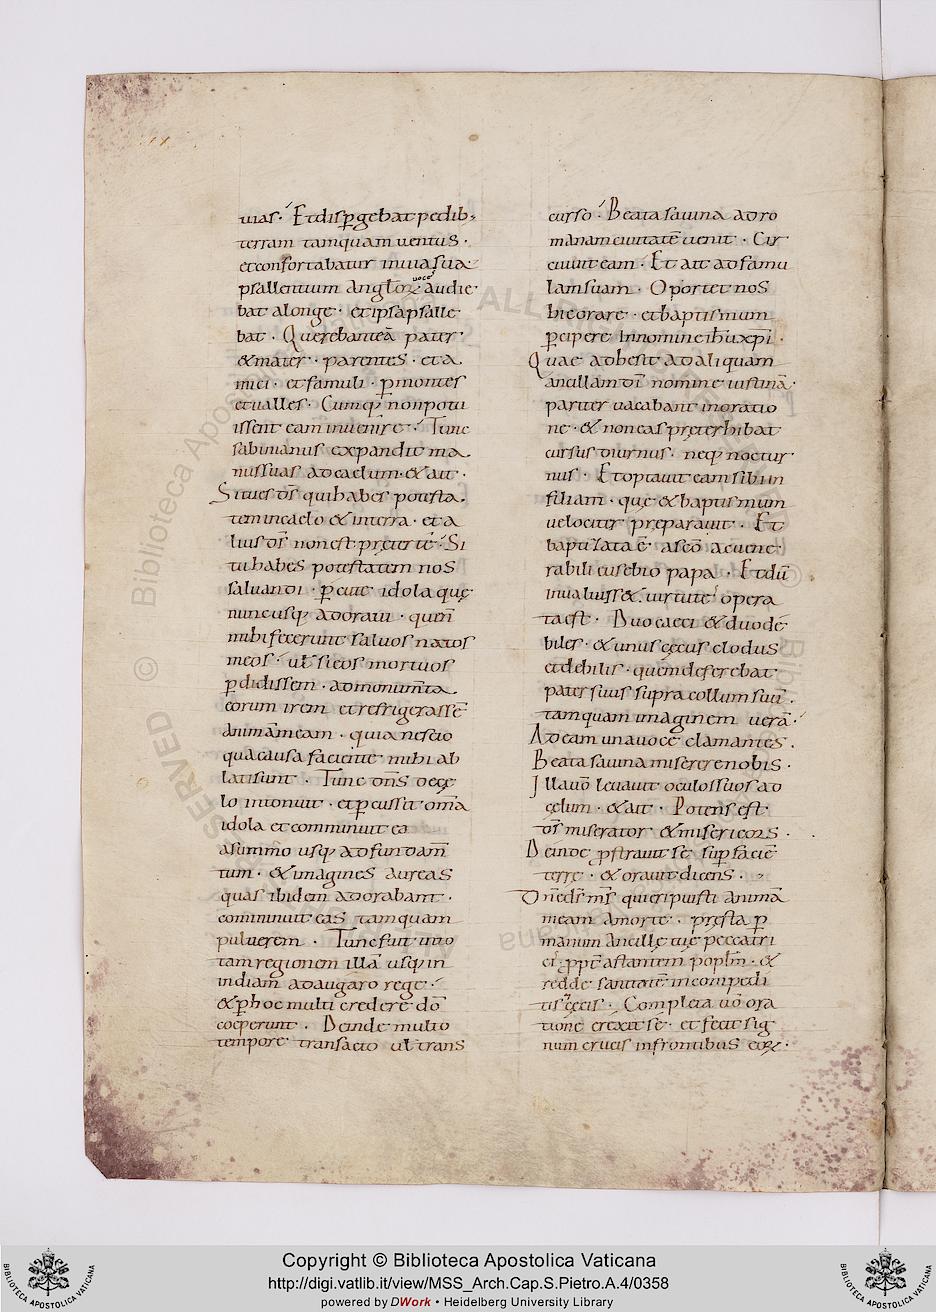 uias · Et dispgebat pedib;
terram tamquam uentus ·
et confortabatur in uia sua
psallentium angloꝝ uoce audie
bat alonge · et ipsa psalle
bat · Querebant eā pater
& mater · parentes · et a
mici · et famuli · p montes
et ualles · Cumq; non potu
issent eam inuenire · Tunc
sabinianus expandit ma
nus suas ad caelum · & ait ·
Si tu es ds̄ qui habes potesta
tem in caelo & in terra · et a
lius ds̄ non est pręter te · Si
tu habes potestatem nos
saluandi · pcute idola quę
nunc usq; adoraui · quem̄
mihi fecerunt saluos natos
meos · ut si eos mortuos
pdidissem · ad monum̄ta
eorum irem et refrigerassē
animam eam · quia nescio
qua causa facitite mihi ab
lati sunt · Tunc dn̄s de cę
lo intonuit · et pcussit om̄a
idola et comminuit ea
a summo usq; ad fundam̄
tum · & imagines aureas
quas ibidem adorabant ·
comminuit eas tamquam
puluerem · Tunc fuit in to
tam regionem illā usq; in
indiam ad augaro rege ·
& p hoc multi credere dō
coeperunt · Deinde multo
tempore transacto ul trans
curso · Beata sauina ad ro
manam ciuitatē uenit · Cir
cuiuit eam · Et ait ad famu
lam suam · Oportet nos
hic orare · et baptismum
pcipere In nomine ih̄u xp̄i ·
Quae adhesit ad aliquam
ancillam dī nomine iustinā ·
pariter uacabant in oratio
ne · & non eas pręterhibat
cursus diurnus · neq; noctur
nus · Et optauit eam sibi in
filiam · quę & baptismum
uelociter pręparauit · Et
baptizata ē ab eo a uene
rabili eusebio papa · Et dū
inualuisset uirtute opera
ta est · Duo caeci & duo de
biles · & unus cęcus clodus
et debilis · quem deferebat
pater suus supra collum suū ·
tamquam imaginem uerā ·
Ad eam una uoce clamantes ·
Beata sauina miserere nobis ·
Illa uō leuauit oculos suos ad
cęlum · & ait · Potens est
ds̄ miserator & misericors ·
Deinde pstrauit se sup faciē
terrę · & orauit dicens ·
Dn̄e ds̄ ms̄ qui eripuisti animā
meam a morte · pręsta p
manum ancillę tuę peccatri
ci · ppt̄ astantem poplm̄ · &
redde sanitatē in compedi
tis cęcis · Completa uō ora
tione erexit se · et fecit sig
num crucis in frontibus eoꝝ ·
Copyright © Biblioteca Apostolica Vaticana
http://digi.vatlib.it/view/MSS_Arch.Cap.S.Pietro.A.4/0358
powered by DWork • Heidelberg University Library